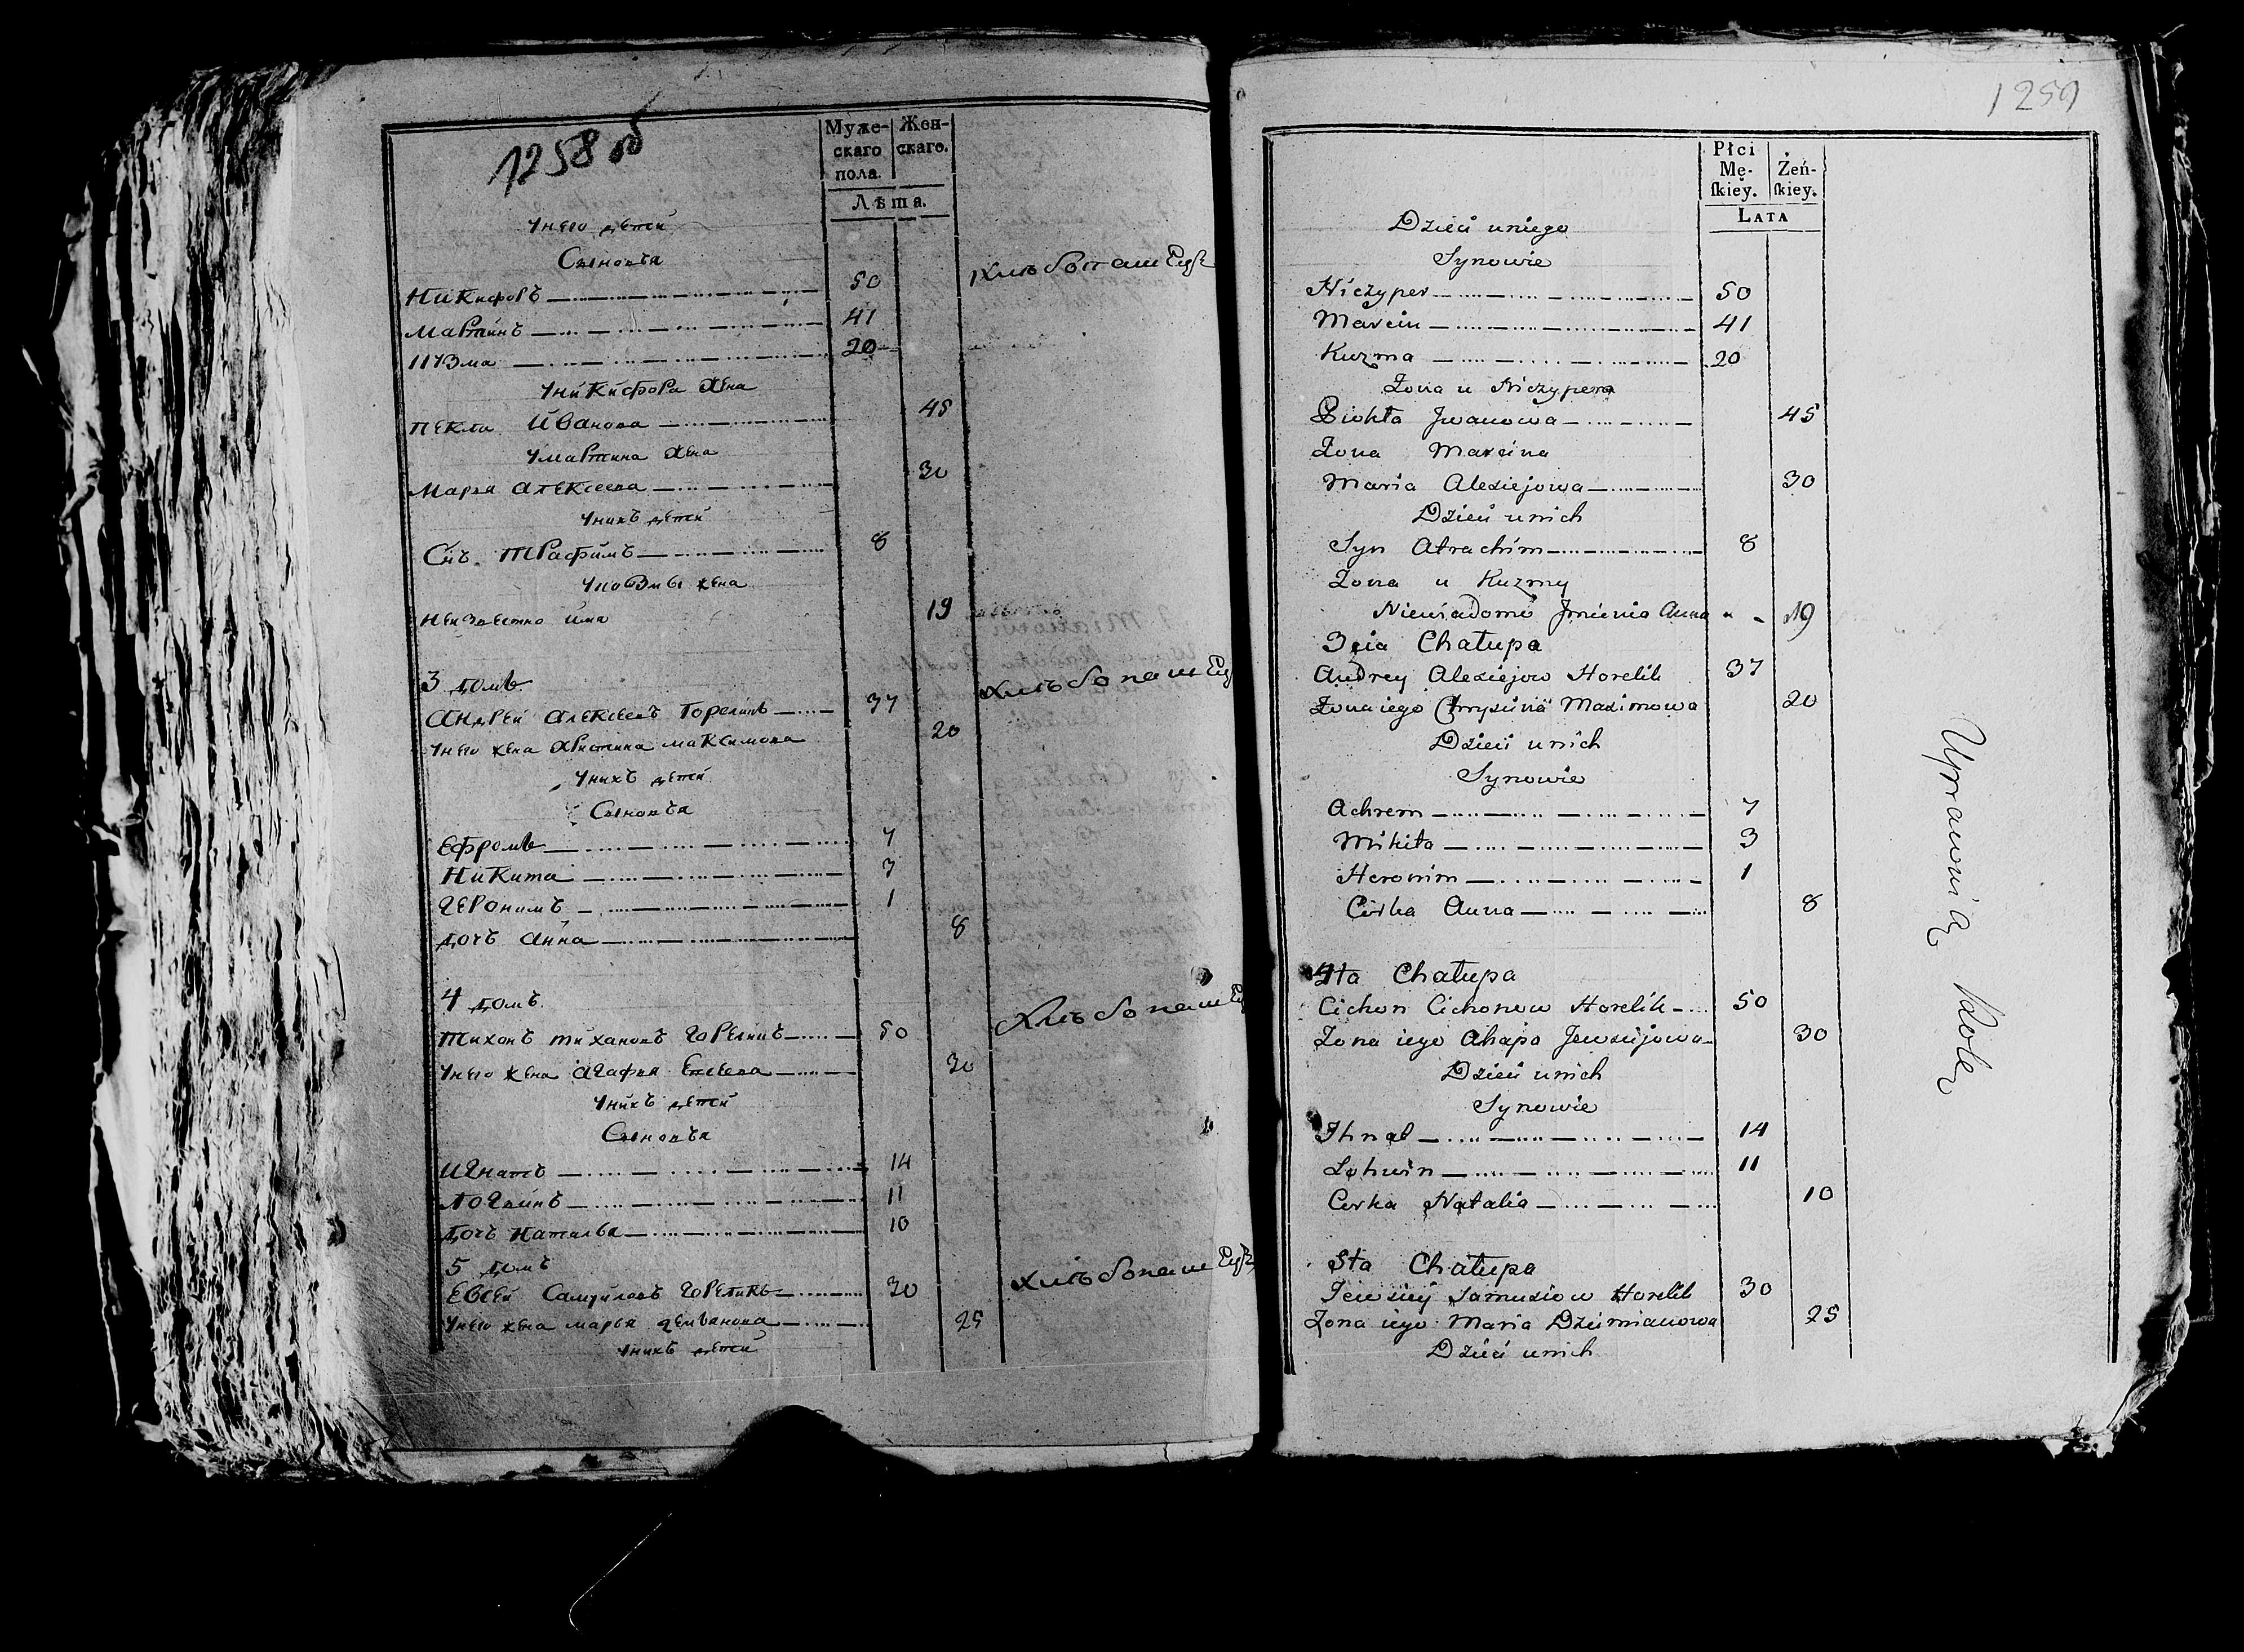 1258 об
Муже-
скаго
пола.
Жен-
скаго.
Лѣта.
У него детей
Сыновья
Никифоръ 50 Хлебопашецъ
Мартинъ 41
20
У Никифора жена
Пекла Иванова 45
У Мартина жена
Марья Алексеева 30
У нихъ детей
Снъ Трафимъ 8
жена
Неизвестно имя 19
3 домъ
Андрей Алексеевъ Гореликъ 37 Хлебопашецъ
У него жена Христина Максимова 20
У нихъ детей
Сыновья
Ефромъ 7
Никита 3
Геронимъ 1
Дочь Анна 8
4 домъ
Тихонъ Тихановъ Гореликъ 50 Хлебопашецъ
У него жена Агафья Евсеева 30
У нихъ детей
Сыновья
Игнатъ 14
Логвинъ 11
Дочь Наталья 10
5 домъ
Евсей Самуйловъ Гореликъ 30 Хлебопашецъ
У него жена Марья Демьянова 25
У нихъ детей
1259
Płci
Mę-
ſkiey.
Żeń-
ſkiey.
LATA
Dzieci u niego
Synowie
Niczyper 50
Marcin 41
Kuzma 20
Żona u Niczypera
Piokła Jwanowa 45
Żona Marcina
Maria Alexiejowa 30
Dzieci u nich
Syn Atrachim 8
Żona u Kuzmy
Niewiadomo Jmienia Anna 19
3cia Chałupa
Andrey Alexiejow Horelik 37
Żona iego Chrysticina Maximowa 20
Dzieci u nich
Synowie
Achrem 7
Mikita 3
Heronim 1
Córka Anna 8
4ta Chałupa
Cichon Cichonow Horelik 50
Żona iego Ahapa Jewsiejowa 30
Dzieci u nich
Synowie
Ihnat 14
Lohwin 11
Corka Natalia 10
5ta Chałupa
Jewsiey Samusiow Horelik 30
Żona iego Maria Dziemianowa 25
Dzieci u nich
Uprawnia Rolę